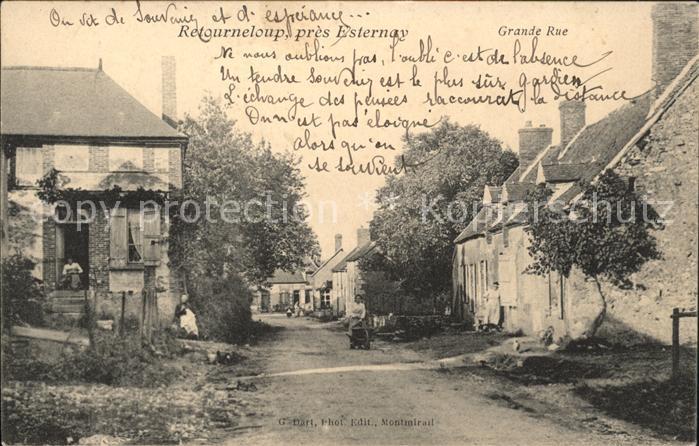 On vit de Souvenir et d'espérance...
Retourneloup, près Esternay
Grande Rue
Ne nous oublions pas, l'oubli c'est de l'absence
Un tendre Souvenir est le plus sûr gardien
L'échange des pensées raccourcit la distance
On n'est pas éloigné
alors qu'on
se souvient
copy protect - Copyright - Kopierschutz
G. Dart, Phot. Edit., Montmirail